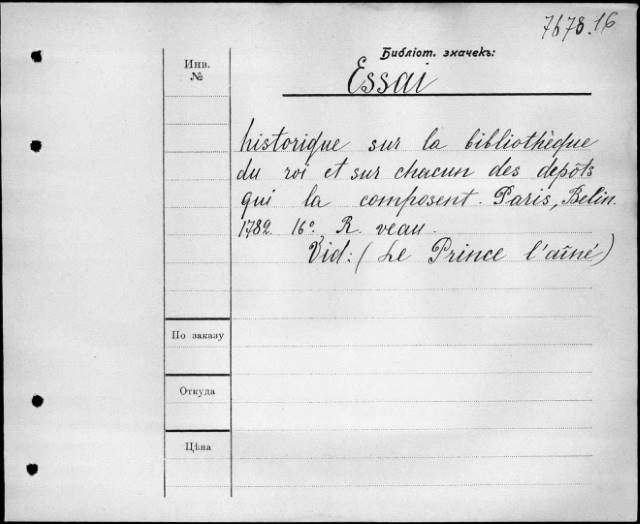 7678.16
Библіот. значекъ:
Инв.
№
Essai
historique sur la bibliothèque
du roi et sur chacun des depôts
qui la composent. Paris, Belin.
1782. 16°. R. veau.
Vid: (Le Prince l'aîné)
По заказу
Откуда
Цѣна